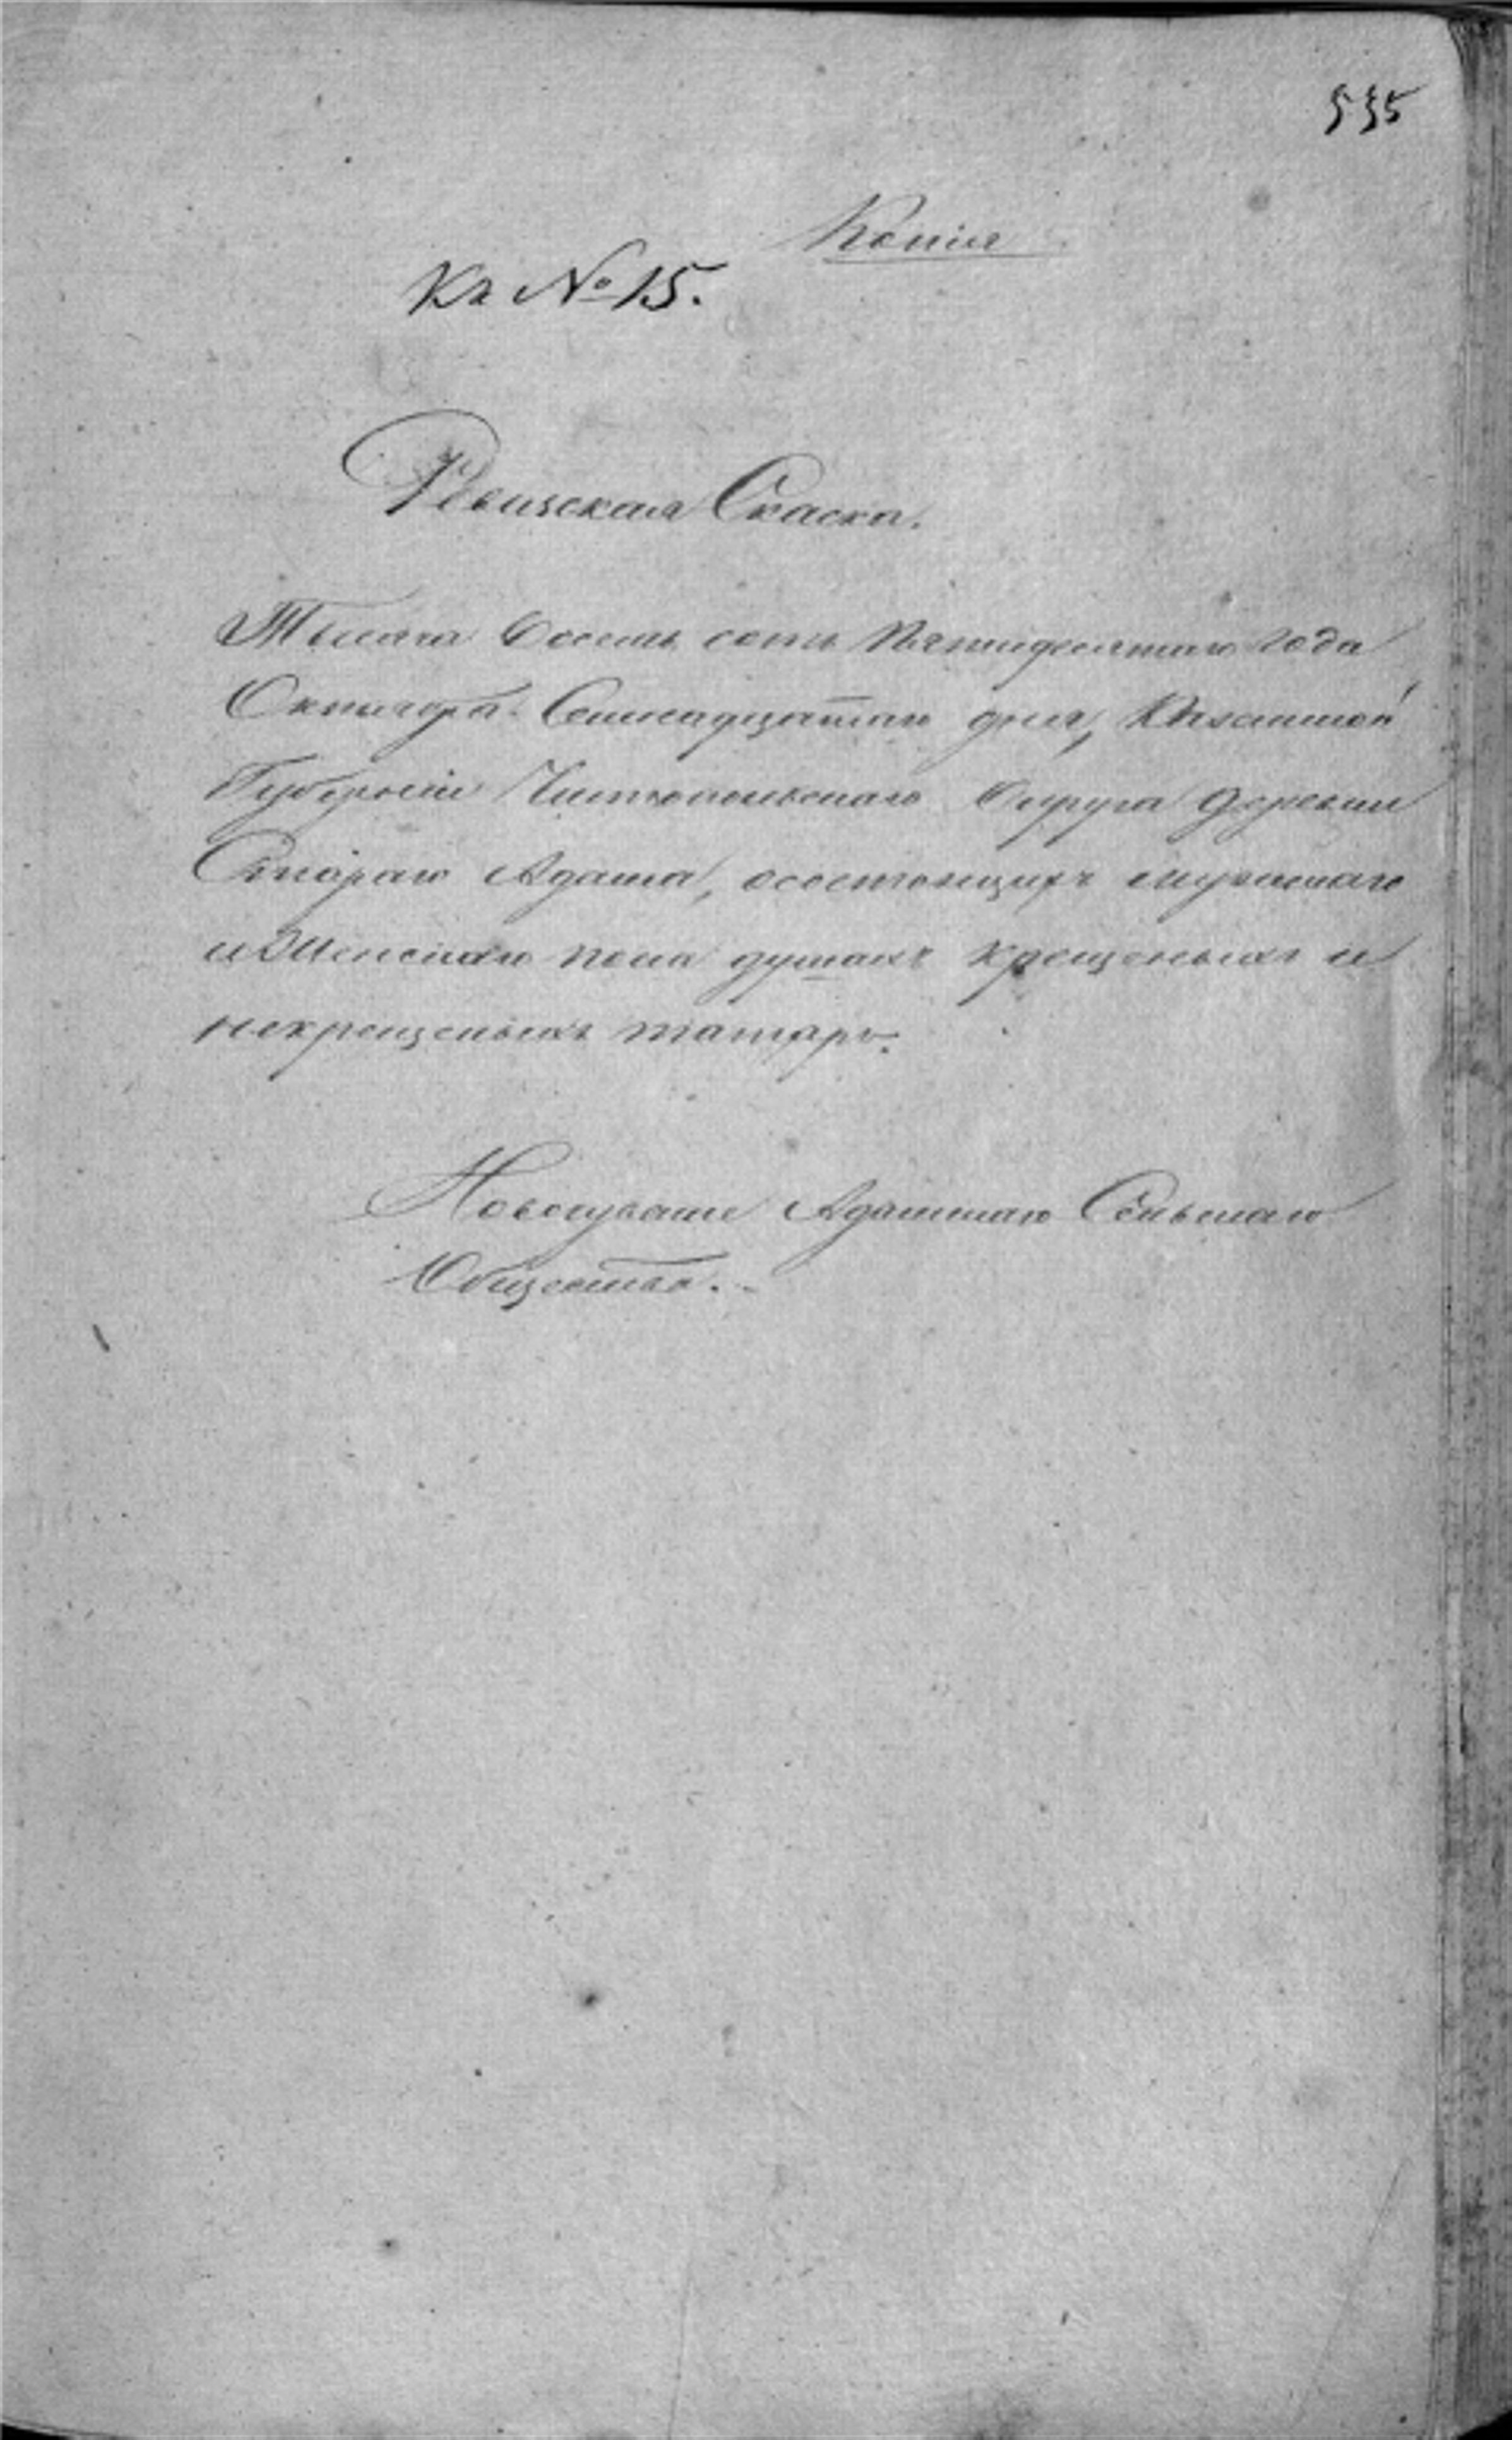 535
Копія
Къ № 15.
Ревизская Скаска.
Тысяча Восемь сотъ Пятидесятаго года
Октября Семнадцатаго дня, Казанской
Губерніи Чистопольскаго Округа деревни
Стараго Адама, о состоящихъ мужескаго
и Женскаго пола душахъ крещеныхъ и
некрещеныхъ татаръ.
Адамскаго Сельскаго
Общества.